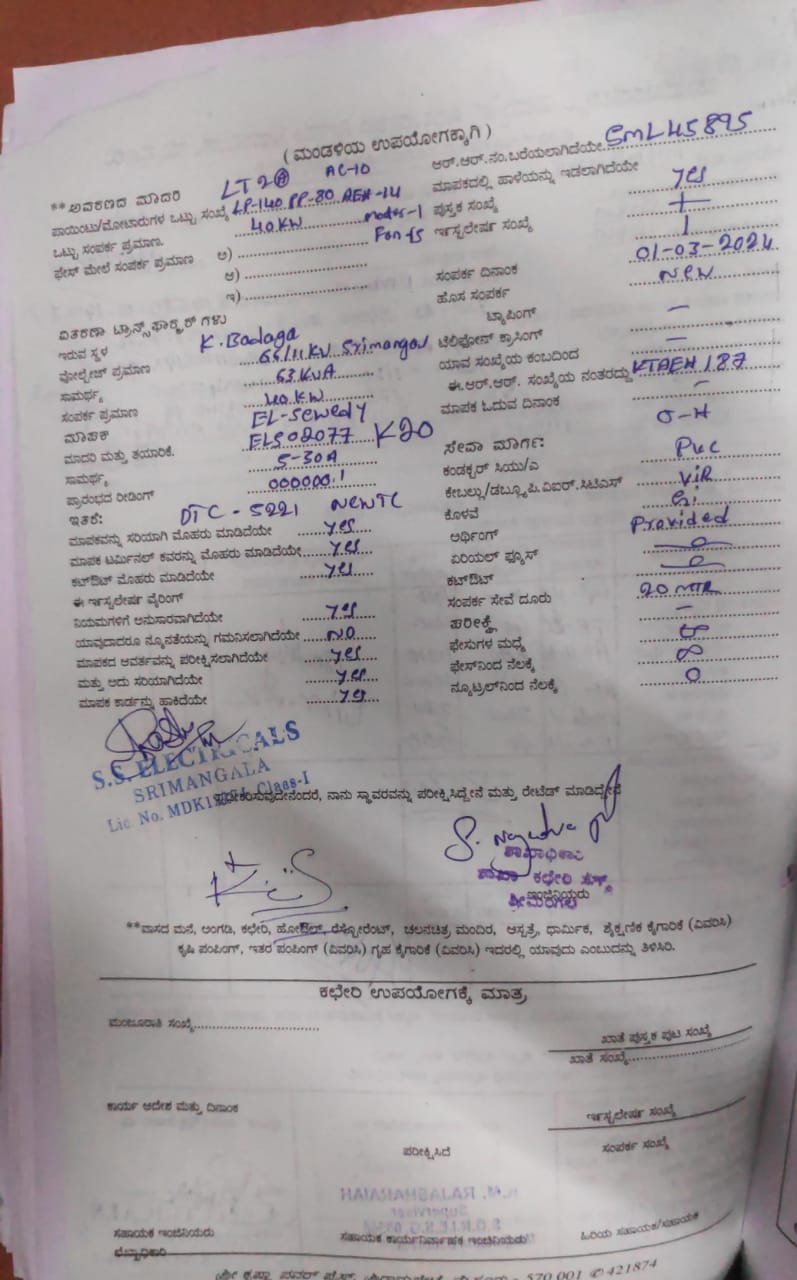 ( ಮಂಡಳಿಯ ಉಪಯೋಗಕ್ಕಾಗಿ )
**ಅವಕರಣದ ಮಾದರಿ LT 2(a) AC-10
ಪಾಯಿಂಟು/ಮೋಟಾರುಗಳ ಒಟ್ಟು ಸಂಖ್ಯೆ LP-140 PP-80 AEH-14
ಒಟ್ಟು ಸಂಪರ್ಕ ಪ್ರಮಾಣ. 40 KW motor-1
ಫೇಸ್ ಮೇಲೆ ಸಂಪರ್ಕ ಪ್ರಮಾಣ ಅ)
ಆ)
ಇ)
ಆರ್.ಆರ್.ನಂ.ಬರೆಯಲಾಗಿದೆಯೇ SML45895
ಮಾಪಕದಲ್ಲಿ ಹಾಳೆಯನ್ನು ಇಡಲಾಗಿದೆಯೇ yes
ಪುಸ್ತಕ ಸಂಖ್ಯೆ
ಇನ್ಸ್ಟಲೇಷನ್ ಸಂಖ್ಯೆ 1
ಸಂಪರ್ಕ ದಿನಾಂಕ 01-03-2024
ಹೊಸ ಸಂಪರ್ಕ New
ಟ್ಯಾಪಿಂಗ್ –
ಟೆಲಿಫೋನ್ ಕ್ರಾಸಿಂಗ್ –
ಯಾವ ಸಂಖ್ಯೆಯ ಕಂಬದಿಂದ
ಈ.ಆರ್.ಆರ್. ಸಂಖ್ಯೆಯ ನಂತರದ್ದು KTAEH 187
ಮಾಪಕ ಓದುವ ದಿನಾಂಕ –
ವಿತರಣಾ ಟ್ರಾನ್ಸ್‌ಫಾರ್ಮರ್ ಗಳು
ಇರುವ ಸ್ಥಳ K. Badaga
ವೋಲ್ಟೇಜ್ ಪ್ರಮಾಣ 66/11 KV
ಸಾಮರ್ಥ್ಯ 63 KVA
ಸಂಪರ್ಕ ಪ್ರಮಾಣ 40 KW
ಮಾಪಕ EL-Sewedy
ಮಾದರಿ ಮತ್ತು ತಯಾರಿಕೆ. ELS02077 K20
ಸಾಮರ್ಥ್ಯ 5-30A
ಪ್ರಾರಂಭದ ರೀಡಿಂಗ್ 000000.1
ಇತರೆ: DTC - 5221 New TC
ಮಾಪಕವನ್ನು ಸರಿಯಾಗಿ ಮೊಹರು ಮಾಡಿದೆಯೇ yes
ಮಾಪಕ ಟರ್ಮಿನಲ್ ಕವರನ್ನು ಮೊಹರು ಮಾಡಿದೆಯೇ yes
ಕಟ್‌ಔಟ್ ಮೊಹರು ಮಾಡಿದೆಯೇ yes
ಈ ಇನ್ಸ್ಟಲೇಷನ್ ವೈರಿಂಗ್
ನಿಯಮಗಳಿಗೆ ಅನುಸಾರವಾಗಿದೆಯೇ yes
ಯಾವುದಾದರೂ ನ್ಯೂನತೆಯನ್ನು ಗಮನಿಸಲಾಗಿದೆಯೇ NO
ಮಾಪಕದ ಆವರ್ತವನ್ನು ಪರೀಕ್ಷಿಸಲಾಗಿದೆಯೇ yes
ಮತ್ತು ಅದು ಸರಿಯಾಗಿದೆಯೇ yes
ಮಾಪಕ ಕಾರ್ಡನ್ನು ಹಾಕಿದೆಯೇ yes
ಸೇವಾ ಮಾರ್ಗ: O-H
ಕಂಡಕ್ಟರ್ ಸಿಯು/ಎ PVC
ಕೇಬಲ್ಲು/ಡಬ್ಲ್ಯೂ.ಪಿ.ವಿಐಆರ್.ಸಿಟಿಎಸ್ ViR
ಕೊಳವೆ Gi
ಅರ್ಥಿಂಗ್ Provided
ಏರಿಯಲ್ ಫ್ಯೂಸ್
ಕಟ್‌ಔಟ್
ಸಂಪರ್ಕ ಸೇವೆ ದೂರು 20 MTR
ಪರೀಕ್ಷೆ –
ಫೇಸುಗಳ ಮಧ್ಯೆ ∞
ಫೇಸ್‌ನಿಂದ ನೆಲಕ್ಕೆ ∞
ನ್ಯೂಟ್ರಲ್‌ನಿಂದ ನೆಲಕ್ಕೆ 0
S.S. ELECTRICALS
SRIMANGALA
Lic No. Class-I
ನಾನು ಸ್ಥಾವರವನ್ನು ಪರೀಕ್ಷಿಸಿದ್ದೇನೆ ಮತ್ತು ರೇಟೆಡ್ ಮಾಡಿದ್ದೇನೆ
ಶಾಖಾಧಿಕಾರಿ
ಶಾಖಾ ಕಛೇರಿ
ಇಂಜಿನಿಯರು
ಶ್ರೀಮಂಗಲ
**ವಾಸದ ಮನೆ, ಅಂಗಡಿ, ಕಛೇರಿ, ಹೋಟೆಲ್, ರೆಸ್ಟೋರೆಂಟ್, ಚಲನಚಿತ್ರ ಮಂದಿರ, ಆಸ್ಪತ್ರೆ, ಧಾರ್ಮಿಕ, ಶೈಕ್ಷಣಿಕ ಕೈಗಾರಿಕೆ (ವಿವರಿಸಿ)
ಕೃಷಿ ಪಂಪಿಂಗ್, ಇತರ ಪಂಪಿಂಗ್ (ವಿವರಿಸಿ) ಗೃಹ ಕೈಗಾರಿಕೆ (ವಿವರಿಸಿ) ಇದರಲ್ಲಿ ಯಾವುದು ಎಂಬುದನ್ನು ತಿಳಿಸಿರಿ.
ಕಛೇರಿ ಉಪಯೋಗಕ್ಕೆ ಮಾತ್ರ
ಮಂಜೂರಾತಿ ಸಂಖ್ಯೆ
ಖಾತೆ ಪುಸ್ತಕ ಪುಟ ಸಂಖ್ಯೆ
ಖಾತೆ ಸಂಖ್ಯೆ
ಕಾರ್ಯ ಆದೇಶ ಮತ್ತು ದಿನಾಂಕ
ಇನ್ಸ್ಟಲೇಷನ್ ಸಂಖ್ಯೆ
ಪರೀಕ್ಷಿಸಿದೆ
ಸಂಪರ್ಕ ಸಂಖ್ಯೆ
ಸಹಾಯಕ ಇಂಜಿನಿಯರು
ಸಹಾಯಕ ಕಾರ್ಯನಿರ್ವಾಹಕ ಇಂಜಿನಿಯರು
ಹಿರಿಯ ಸಹಾಯಕ/ಸಹಾಯಕ
570 001 ✆ 421874